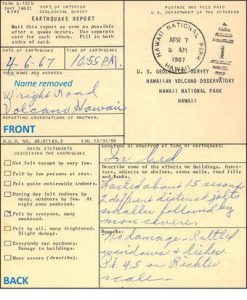 DEPT. OF INTERIOR
GEOLOGICAL SURVEY
EARTHQUAKE REPORT
Mail this report as soon as possible
after a quake occurs. Use separate
card for each shock. Fill in both
sides of card.
POSTAGE AND FEES PAID
U. S. DEPARTMENT OF THE INTERIOR
HAWAII NATIONAL PARK
APR 7
6 AM
1967
HAWAII
DATE OF EARTHQUAKE
TIME OF EARTHQUAKE
4-6-67
10:55 P.M.
NAME AND ADDRESS
Name removed
Wright Road
Volcano Hawaii
REPORTING OBSERVATIONS OF ANOTHER:
U. S. GEOLOGICAL SURVEY
HAWAIIAN VOLCANO OBSERVATORY
HAWAII NATIONAL PARK
HAWAII
FRONT
CHECK THE STATEMENTS
DESCRIBING THE EARTHQUAKE
Not felt except by very few.
Felt by few persons at rest.
Felt quite noticeably indoors.
During day felt indoors by
many, outdoors by few. At
night some awakened.
Felt by everyone, many
awakened.
Felt by all, many frightened.
Slight damage.
Everybody ran outdoors.
Damage to buildings.
Other (specify):
Location of observer at time of earthquake:
In bed
Describe some of the effects on buildings, furniture,
objects on shelves, stone walls, road
fillings and banks.
Lasted about 15 seconds
2 different distinct jolts
smaller followed by
more severe.
Damage:
No damage. Rattled
windows & dishes
4.5 on Richter
scale.
BACK